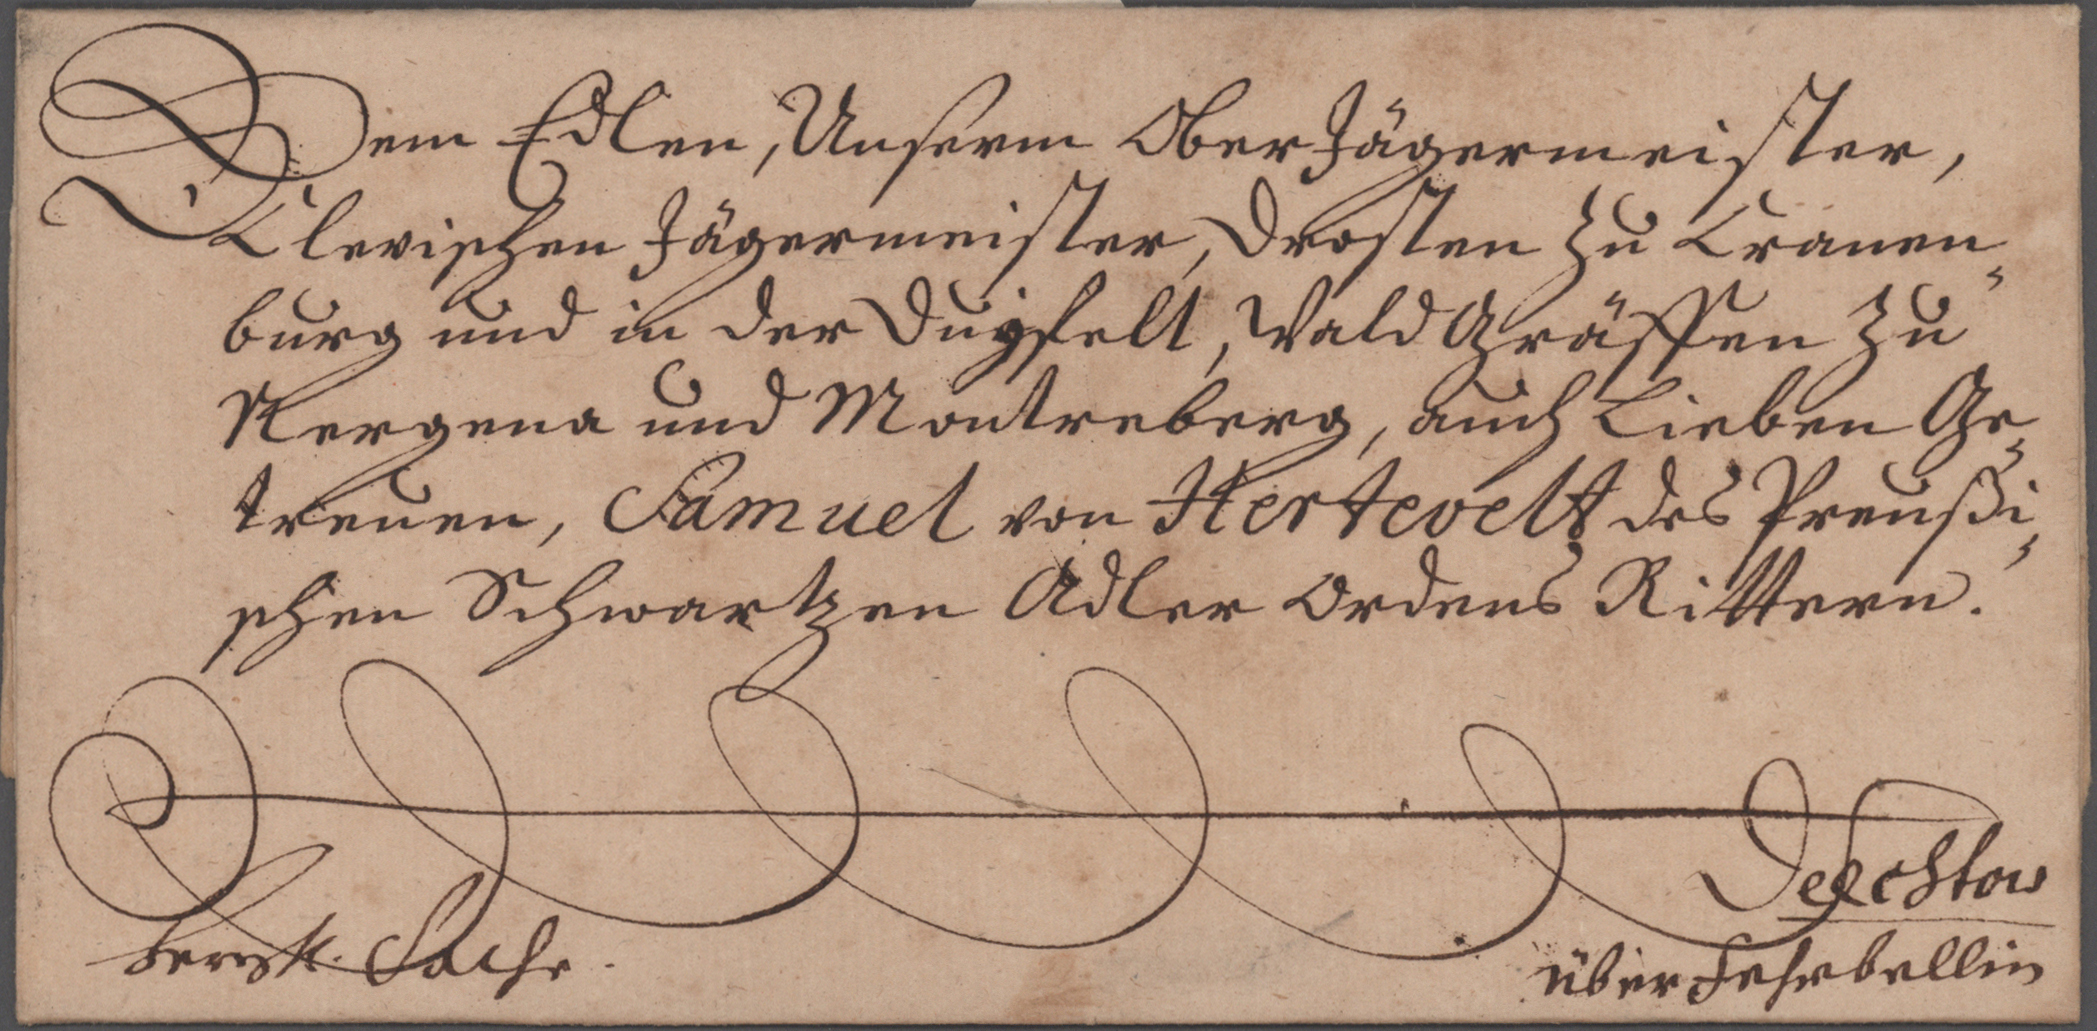 Dem Edlen, Unserm Ober Jägermeister,
Clevischen Jägermeister, Drosten zu Cranen-
burg und in der Duyfelt, Wald Gräffen zu
Nergena und Montreberg, auch Lieben Ge-
treuen, Samuel von Hertevelt des Preußi-
schen Schwartzen Adler Ordens Rittern.
Dechtow
Sache.
über Fehrbellin